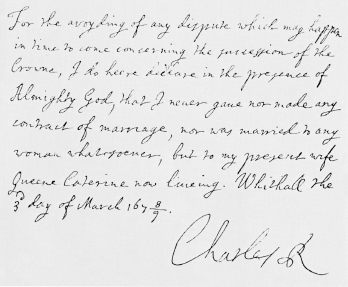 For the avoyding of any dispute which may happen
in time to come concerning the succession of the
Crowne, I do heere declare in the presence of
Almighty God, that I never gave nor made any
contract of marriage, nor was married to any
woman whatsoever, but to my present wife
Queene Caterine now liveing. Whithall the
3d day of March 167 8/9.
Charles R